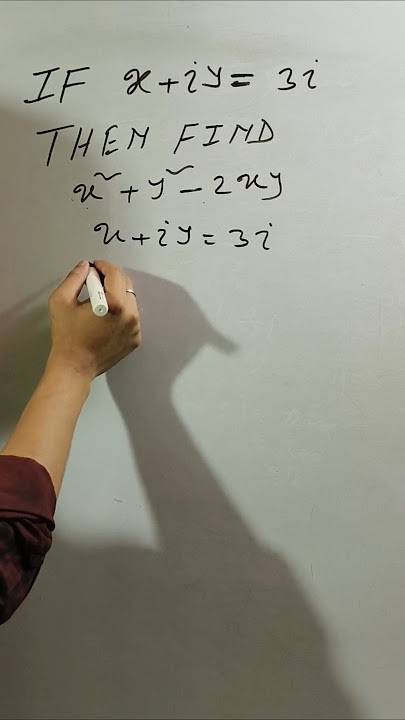 IF x+iy = 3i
THEN FIND
x² + y² - 2xy
x+iy = 3i